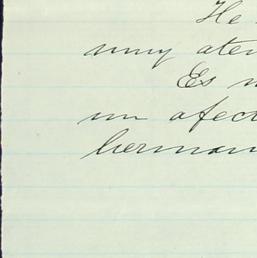 He
muy aten
Es m
un afect
herman